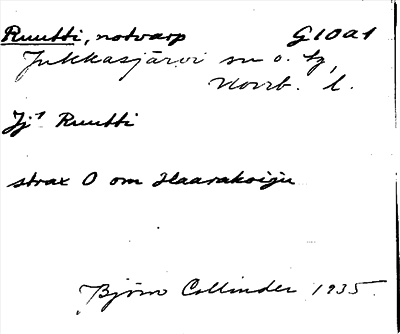 Ruutti, notvarp G10a1
Jukkasjärvi sn o. tg,
Norrb. l.
Jj¹ Ruutti
strax O om Haarakoiju
Björn Collinder 1935